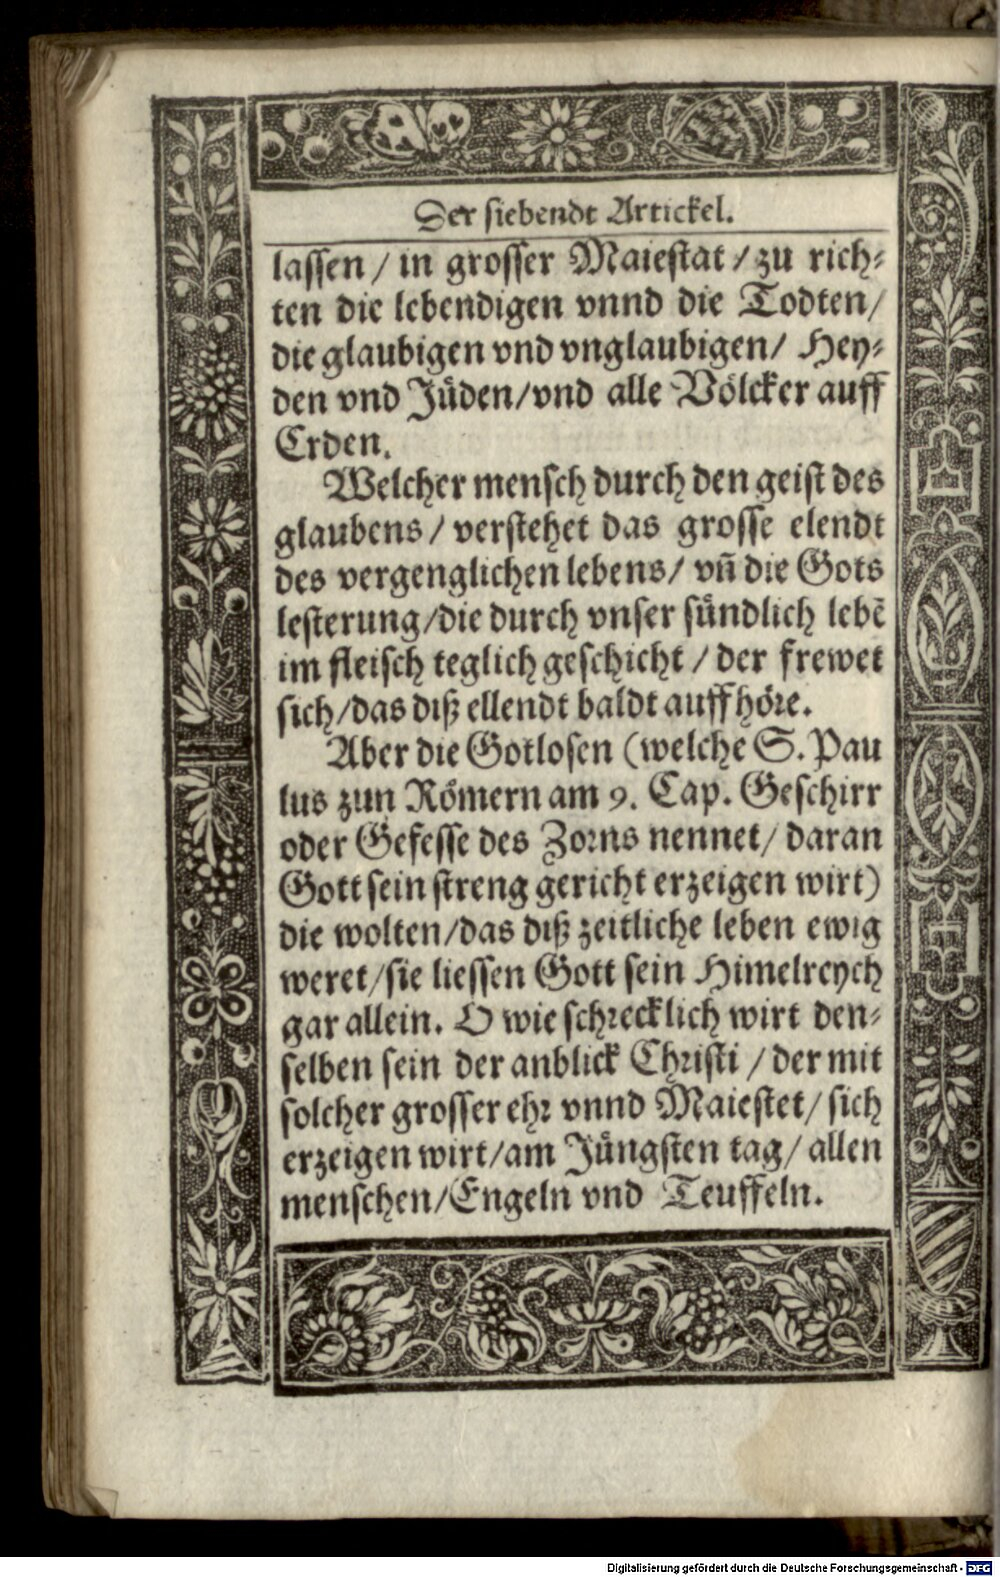 Der siebendt Artickel.
lassen / in grosser Maiestat / zu rich⸗
ten die lebendigen vnnd die Todten/
die glaubigen vnd vnglaubigen/ Hey⸗
den vnd Jüden/vnd alle Völcker auff
Erden.
Welcher mensch durch den geist des
glaubens / verstehet das grosse elendt
des vergenglichen lebens/ vñ die Gots
lesterung/die durch vnser sündlich lebē
im fleisch teglich geschicht / der frewet
sich/das diß ellendt baldt auffhöre.
Aber die Gotlosen (welche S. Pau
lus zun Römern am 9. Cap. Geschirr
oder Gefesse des Zorns nennet/ daran
Gott sein streng gericht erzeigen wirt)
die wolten/das diß zeitliche leben ewig
weret/sie liessen Gott sein Himelreych
gar allein. O wie schrecklich wirt den⸗
selben sein der anblick Christi / der mit
solcher grosser ehr vnnd Maiestet/ sich
erzeigen wirt/am Jüngsten tag/ allen
menschen/Engeln vnd Teuffeln.
Digitalisierung gefördert durch die Deutsche Forschungsgemeinschaft - DFG